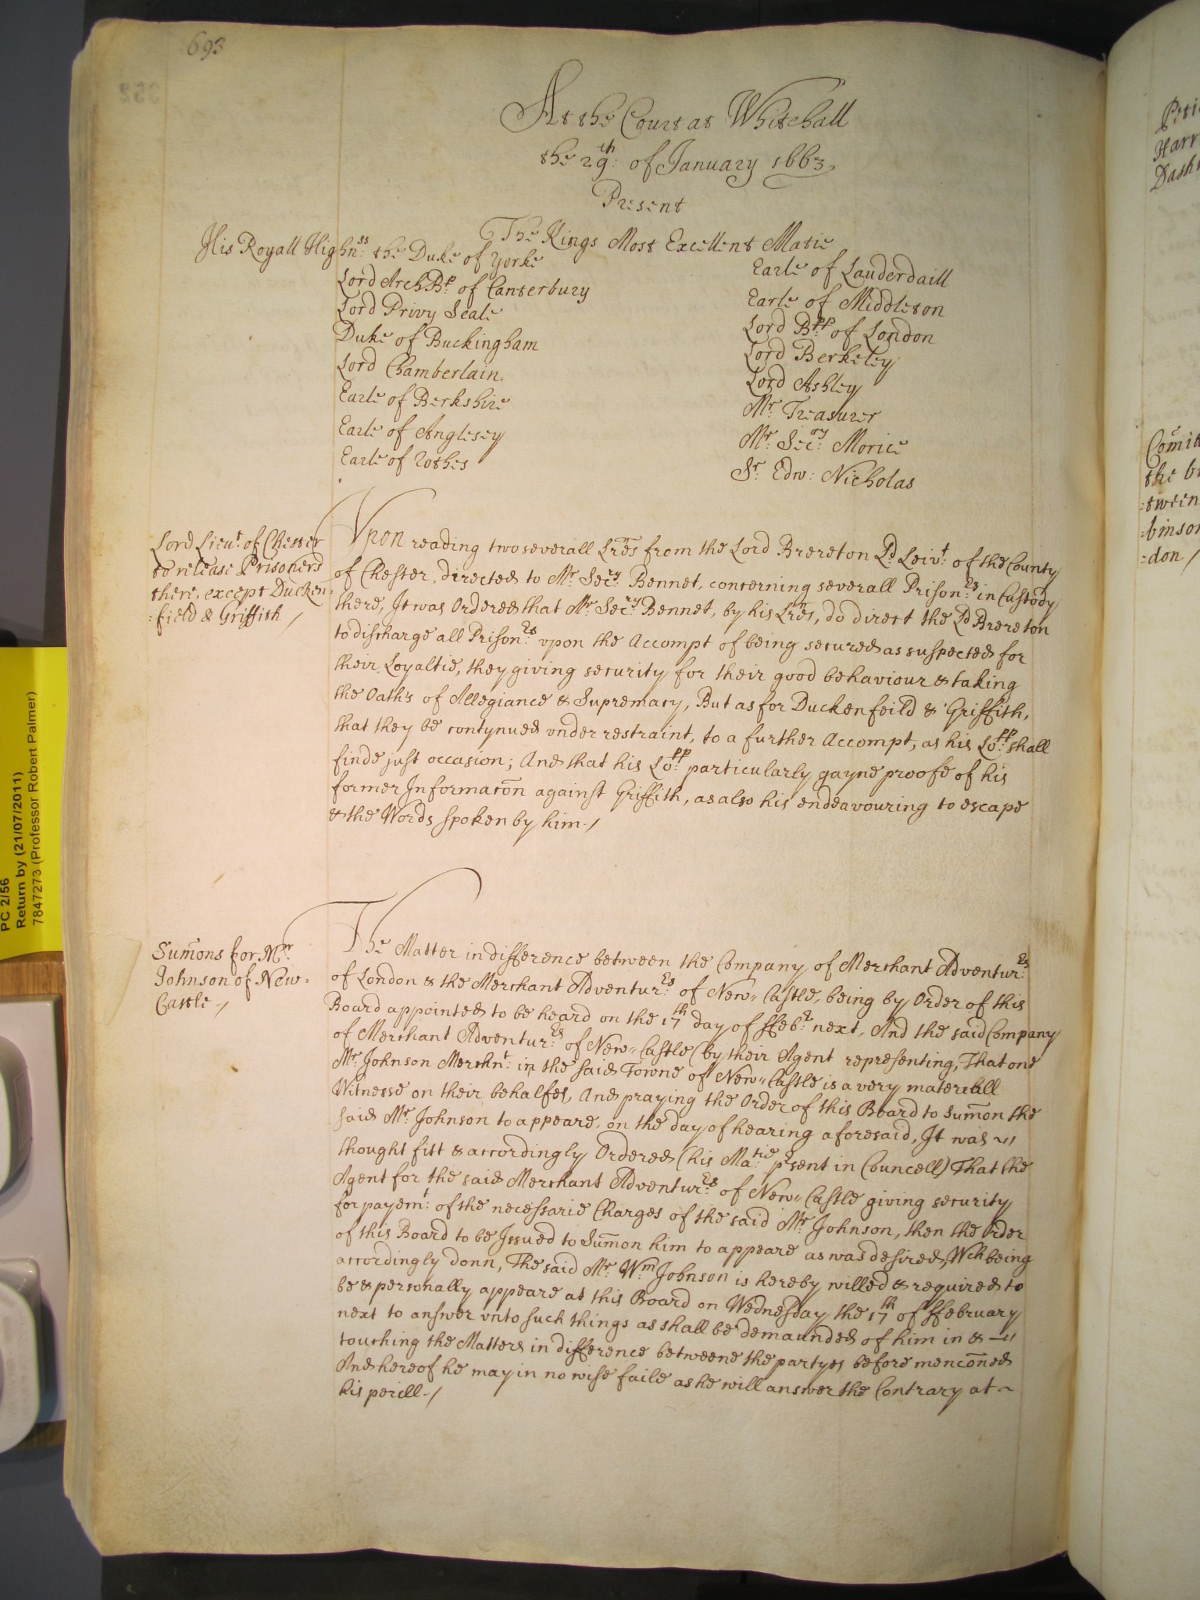 693
At the Court at Whitehall
the 29th of January 1663
Present
The Kings Most Excellent Matie
His Royall Highnss the Duke of Yorke
Lord ArchBp of Canterbury
Lord Privy Seale
Duke of Buckingham
Lord Chamberlain
Earle of Berkshire
Earle of Anglesey
Earle of Rothes
Earle of Lauderdaill
Earle of Middleton
Lord Bpp of London
Lord Berkeley
Lord Ashley
Mr Treasurer
Mr Secry Morice
Sr Edw: Nicholas
Lord Lieut of Chester
to release Prisoners
there, except Ducken
:field & Griffith /
Vpon reading two severall Lres from the Lord Brereton Ld Leivt of the County
of Chester, directed to Mr Secry Bennet, concerning severall Prisonrs in Custody
there, It was Ordered that Mr Secry Bennet, by his Lres, do direct the Ld Brereton
to discharge all Prisonrs vpon the Accompt of being secured as suspected for
their Loyaltie, they giving security for their good behaviour & taking
the Oaths of Allegiance & Supremacy, But as for Duckenfeild & Griffith,
that they be contynued vnder restraint, to a further Accompt, as his Lopp shall
finde just occasion; And that his Lopp particularly gayne proofe of his
former Informacon against Griffith, as also his endeavouring to escape
& the Words spoken by him./
Sumons for Mr
Johnson of New-
Castle -/
The Matter in difference between the Company of Merchant Adventurrs
of London & the Merchant Adventurrs of New=Castle, being by Order of this
Board appointed to be heard on the 17th day of ffebr next, And the said Company
of Merchant Adventurrs of New=Castle (by their Agent representing, That one
Mr Johnson Merchnt in the said Towne of New=Castle is a very materiall
Witnesse on their behalfes, And praying the Order of this Board to sumon the
said Mr Johnson to appeare, on the day of hearing aforesaid, It was
thought fitt & accordingly Ordered (his Matie psent in Councell) That the
Agent for the said Merchant Adventurrs of New=Castle giving security
for paymt of the necessarie Charges of the said Mr Johnson, then the Order
of this Board to be Issued to Sumon him to appeare as was desired, Wch being
accordingly donn, The said Mr Wm Johnson is hereby willed & required to
be & personally appeare at this Board on Wednesday the 17th of ffebruary
next to answer vnto such things as shall be demaunded of him in &
touching the Matters in difference betweene the partyes before menconed
And hereof he may in no wise faile as he will answer the Contrary at
his perill./
PC 2/56
Return by (21/07/2011)
7847273 (Professor Robert Palmer)
Harr
Dash
Comitt
the b
:tween
:binson
:don /